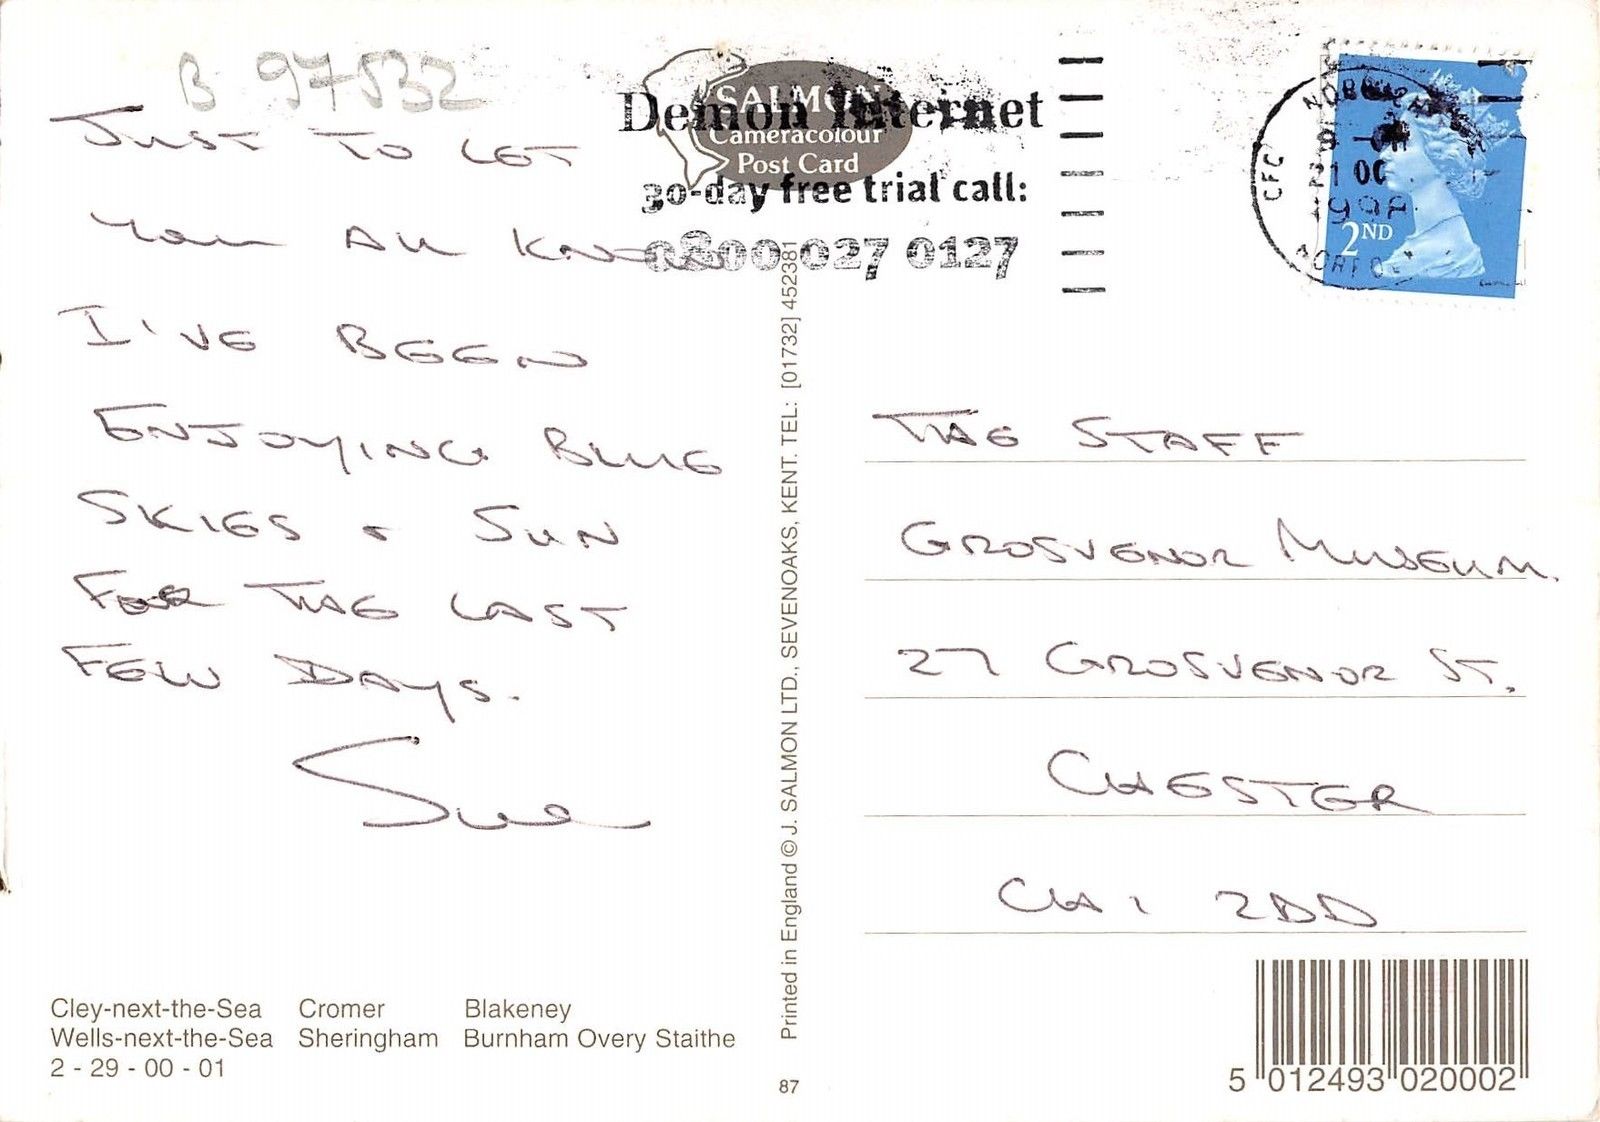 B 97532
JUST TO LET
YOU ALL KNOW
I'VE BEEN
ENJOYING BLUE
SKIES + SUN
FOR THE LAST
FEW DAYS.
Sue
Cley-next-the-Sea Cromer Blakeney
Wells-next-the-Sea Sheringham Burnham Overy Staithe
2 - 29 - 00 - 01
SALMON
Cameracolour
Post Card
Demon Internet
30-day free trial call:
0800 027 0127
Printed in England © J. SALMON LTD., SEVENOAKS, KENT. TEL: [01732] 452381
87
CFC
21 OC
NORFOLK
2ND
THE STAFF
GROSVENOR MUSEUM.
27 GROSVENOR ST.
CHESTER
CH1 2DD
5 012493 020002